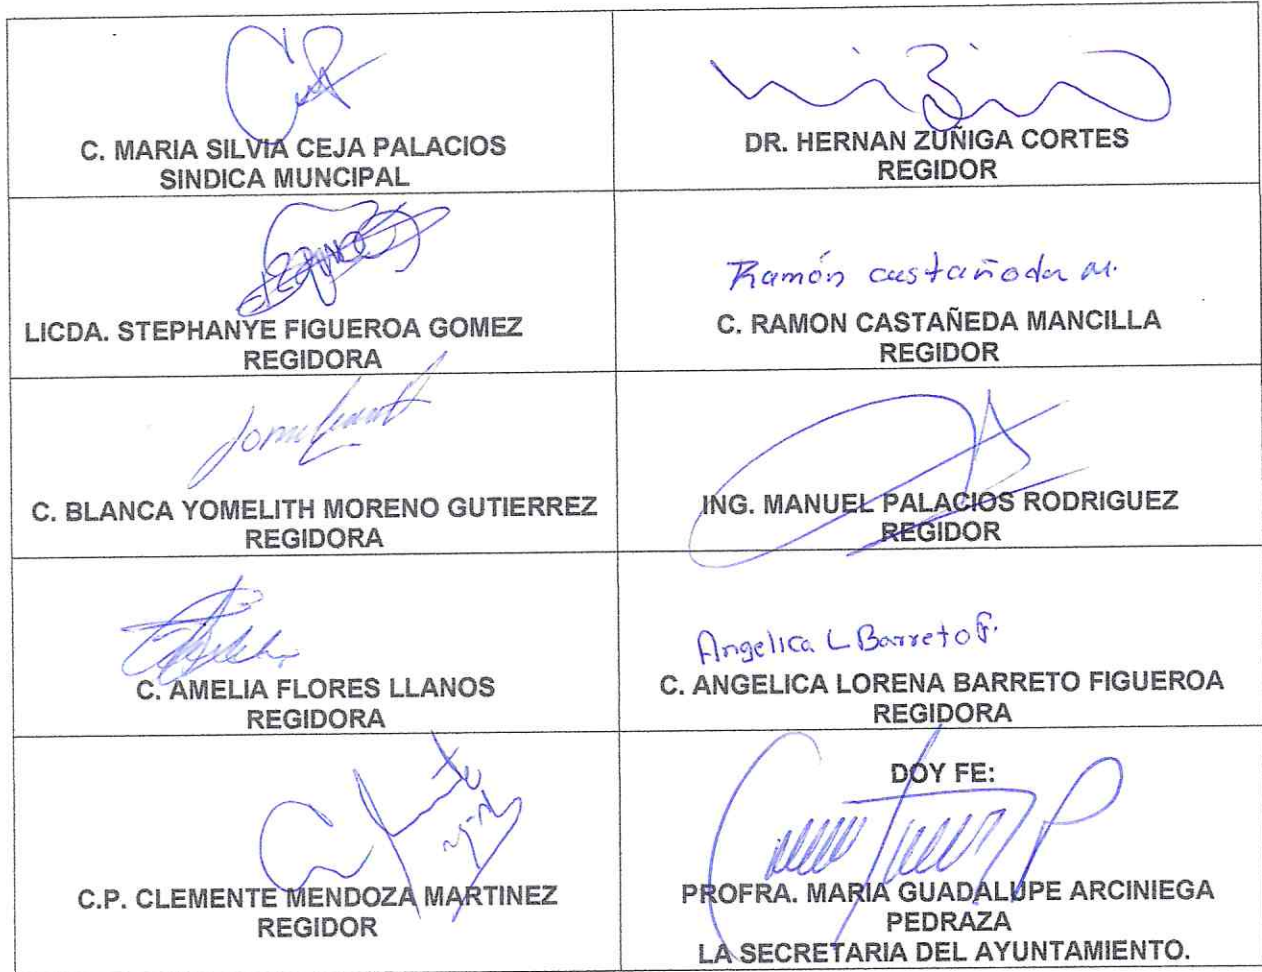 C. MARIA SILVIA CEJA PALACIOS
SINDICA MUNCIPAL
DR. HERNAN ZUÑIGA CORTES
REGIDOR
LICDA. STEPHANYE FIGUEROA GOMEZ
REGIDORA
Ramón castañeda M.
C. RAMON CASTAÑEDA MANCILLA
REGIDOR
C. BLANCA YOMELITH MORENO GUTIERREZ
REGIDORA
ING. MANUEL PALACIOS RODRIGUEZ
REGIDOR
C. AMELIA FLORES LLANOS
REGIDORA
Angelica L Barreto F.
C. ANGELICA LORENA BARRETO FIGUEROA
REGIDORA
C.P. CLEMENTE MENDOZA MARTINEZ
REGIDOR
DOY FE:
PROFRA. MARIA GUADALUPE ARCINIEGA
PEDRAZA
LA SECRETARIA DEL AYUNTAMIENTO.